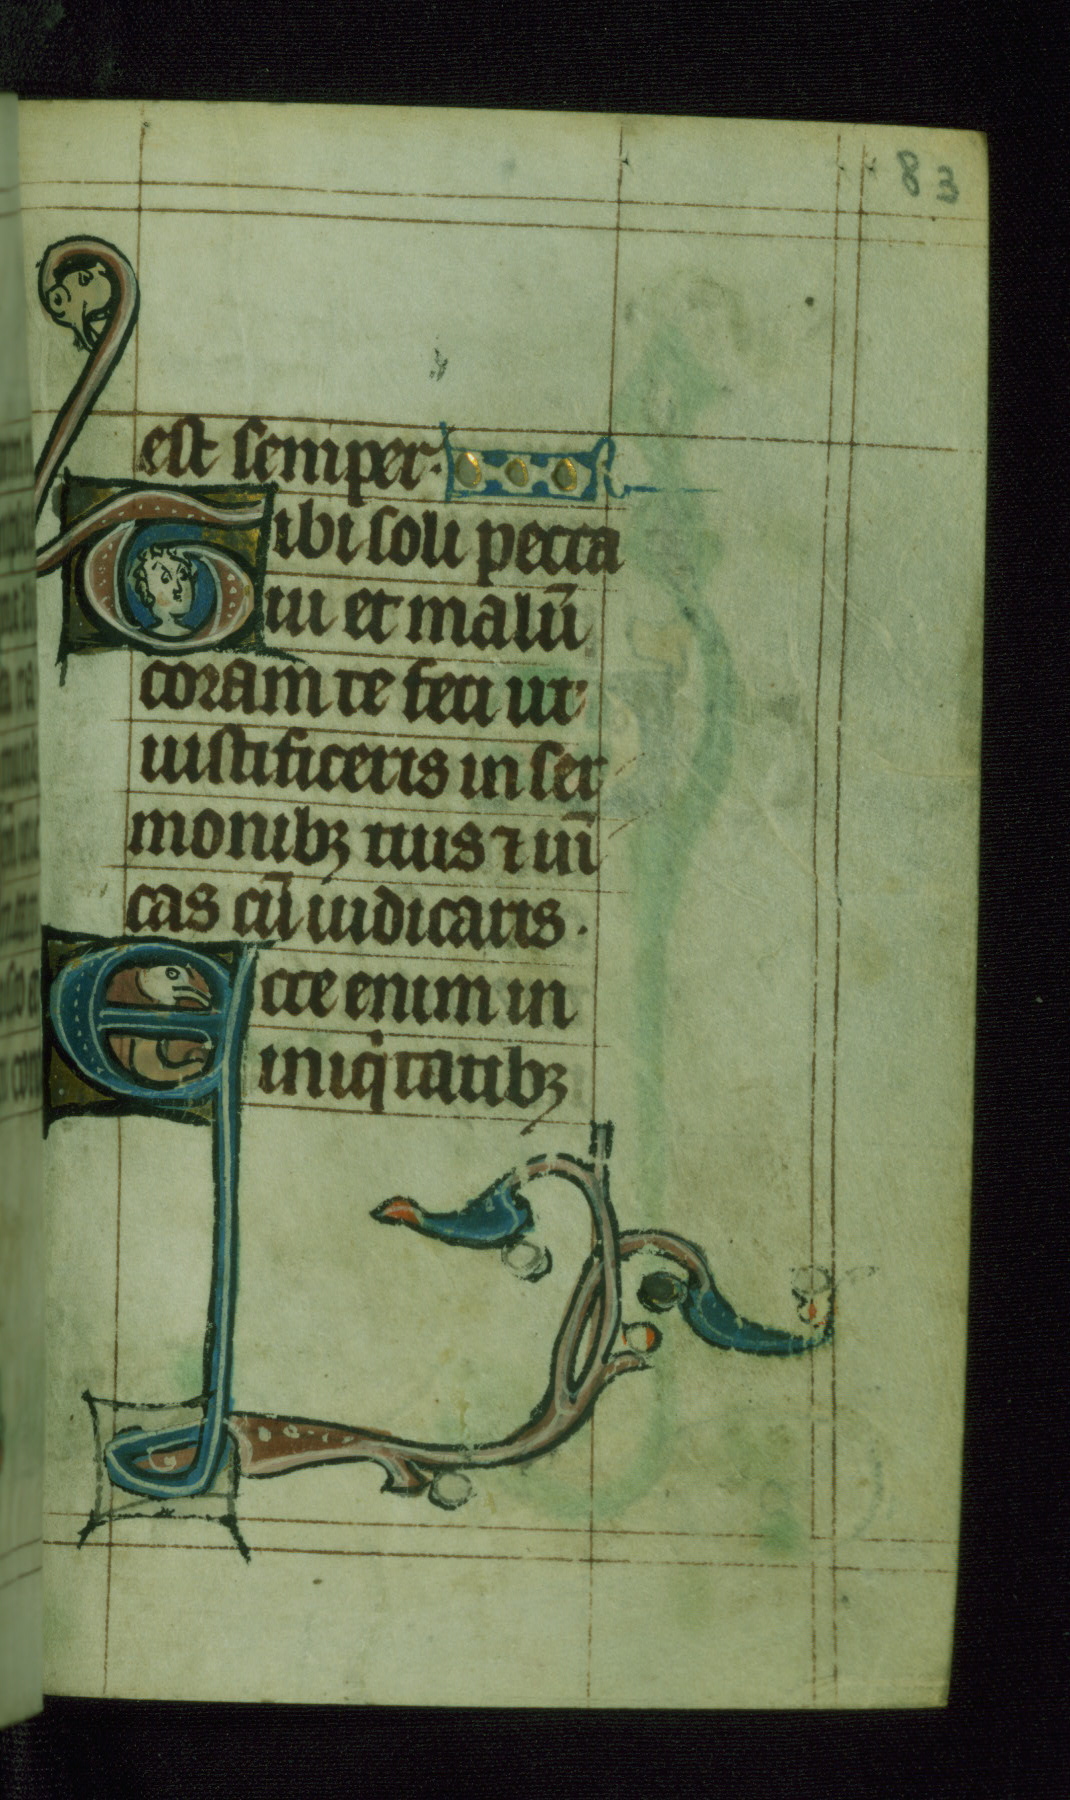 83
est semper·
Tibi soli pecca
ui et malū
coram te feci ut
iustificeris in ser
monibꝫ tuis ⁊ uī
cas cū iudicaris·
Ecce enim in
iniqⁱtatibꝫ